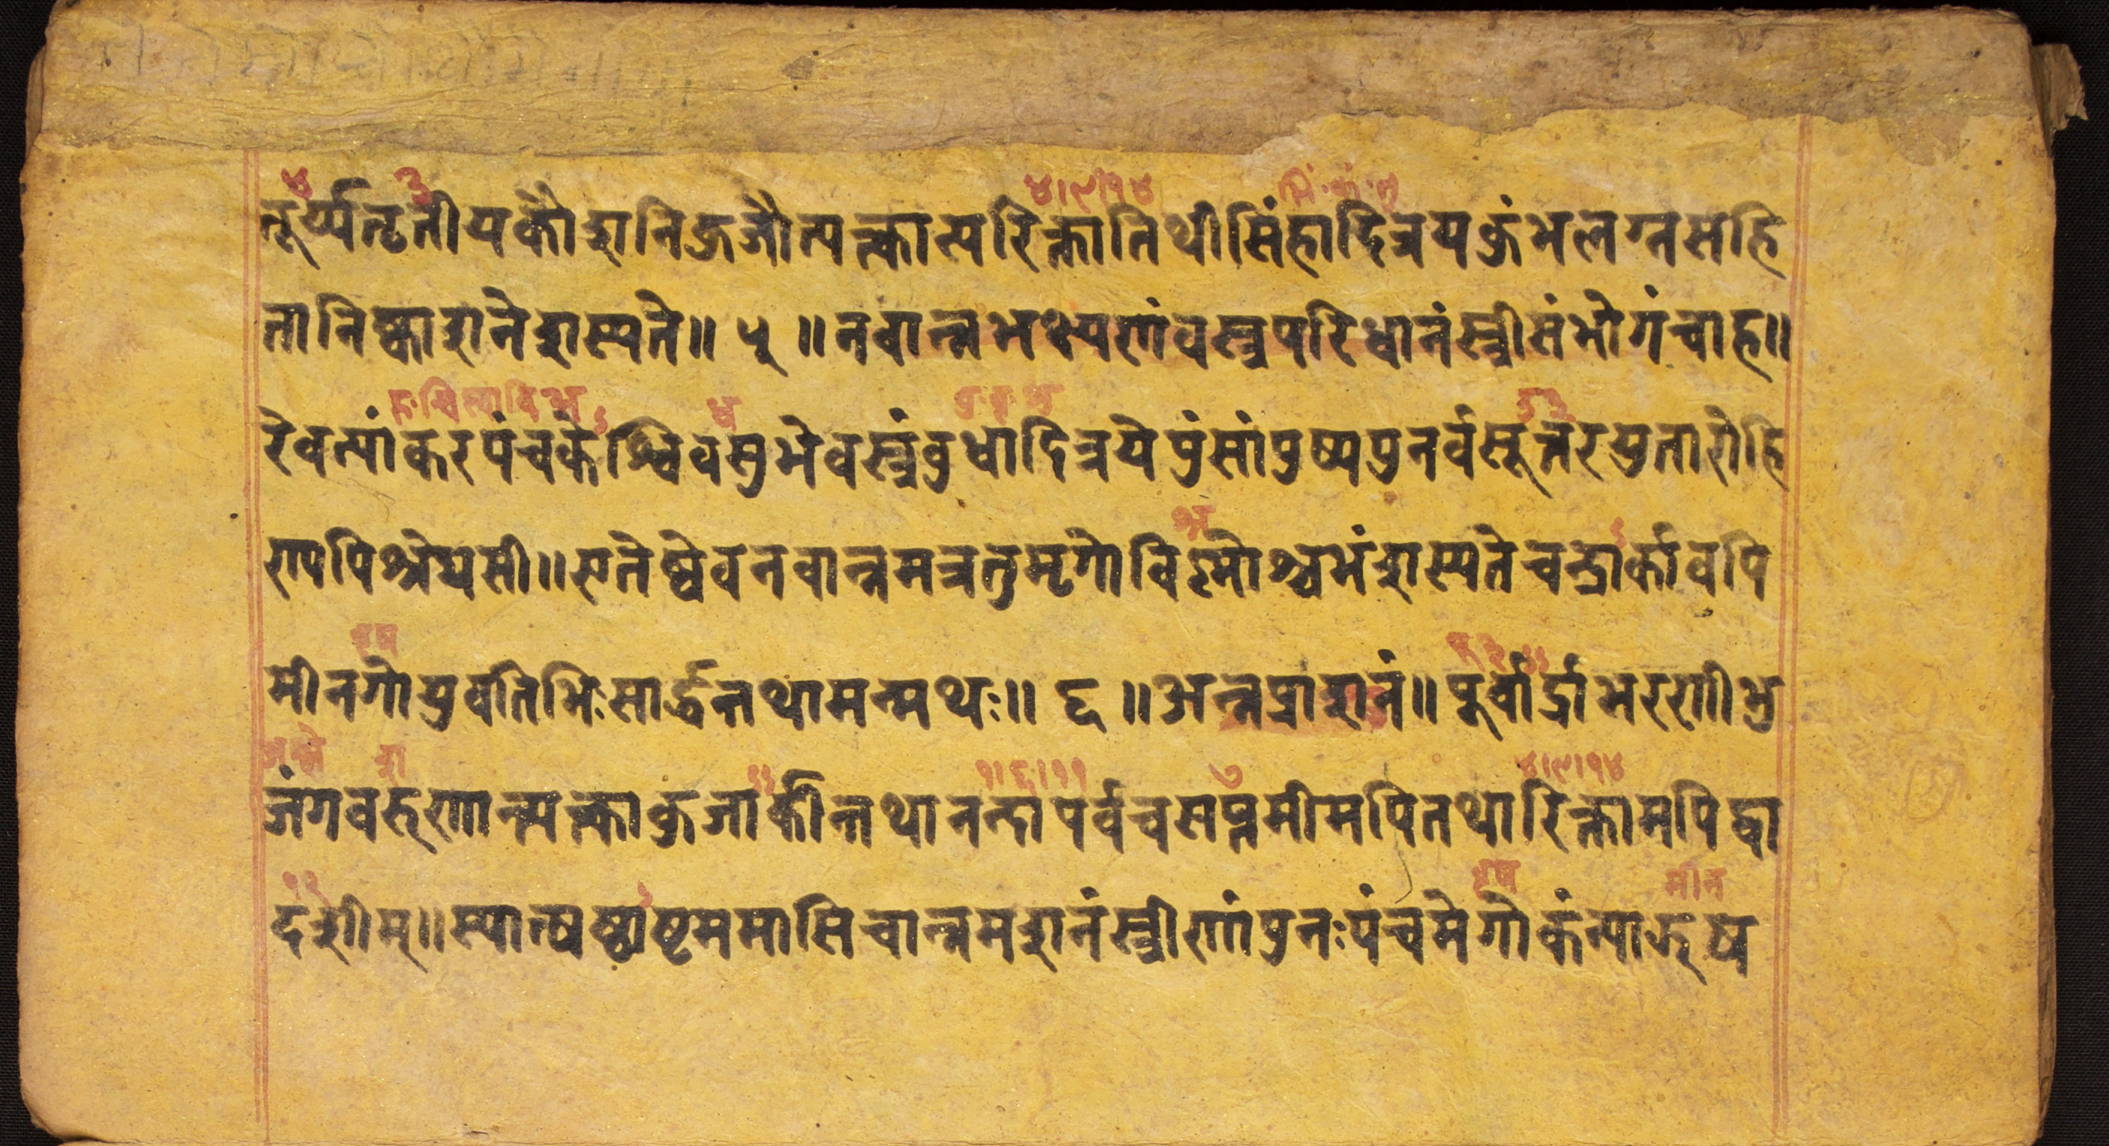 ४ ३ ४।९।१४ सिं·कं·तु
तूर्य्यतृतीयकौशनिकुजौत्यत्कात्यरिक्तातिथीसिंहादित्रयकुंभलग्नसहि
तानिष्काशनेशस्यते॥ ५ ॥नवान्नभक्ष्यणंवस्त्रपरिधानंस्त्रीसंभोगंचाह॥
रेवत्यांकरपंचकेश्विवसुभेवस्त्रंवुधादित्रयेपुंसांपुष्यपुनर्वसूत्तरयुतारोहि
ण्यपिश्रेयसी॥एतेष्वेवनवान्नमत्रतुमृगोविष्मोश्चभंशस्यतेचन्द्रार्कावपि
वृष
मीनगोयुवतिभिःसार्द्धन्तथामन्मथः॥ ६ ॥अन्नप्राशनं॥पूर्वार्द्राभरणीभु
१।६।११ ७ ४।९।१४
जंगवरुणान्त्यत्काकुजार्कीन्तथानन्दापर्वचसप्तमीमपितथारिक्तामपिद्वा
१२ वृष मीन
दशीम्॥स्यात्षष्ठाष्टममासिचान्नमशनंस्त्रीणांपुनःपंचमेगोकंन्याझष